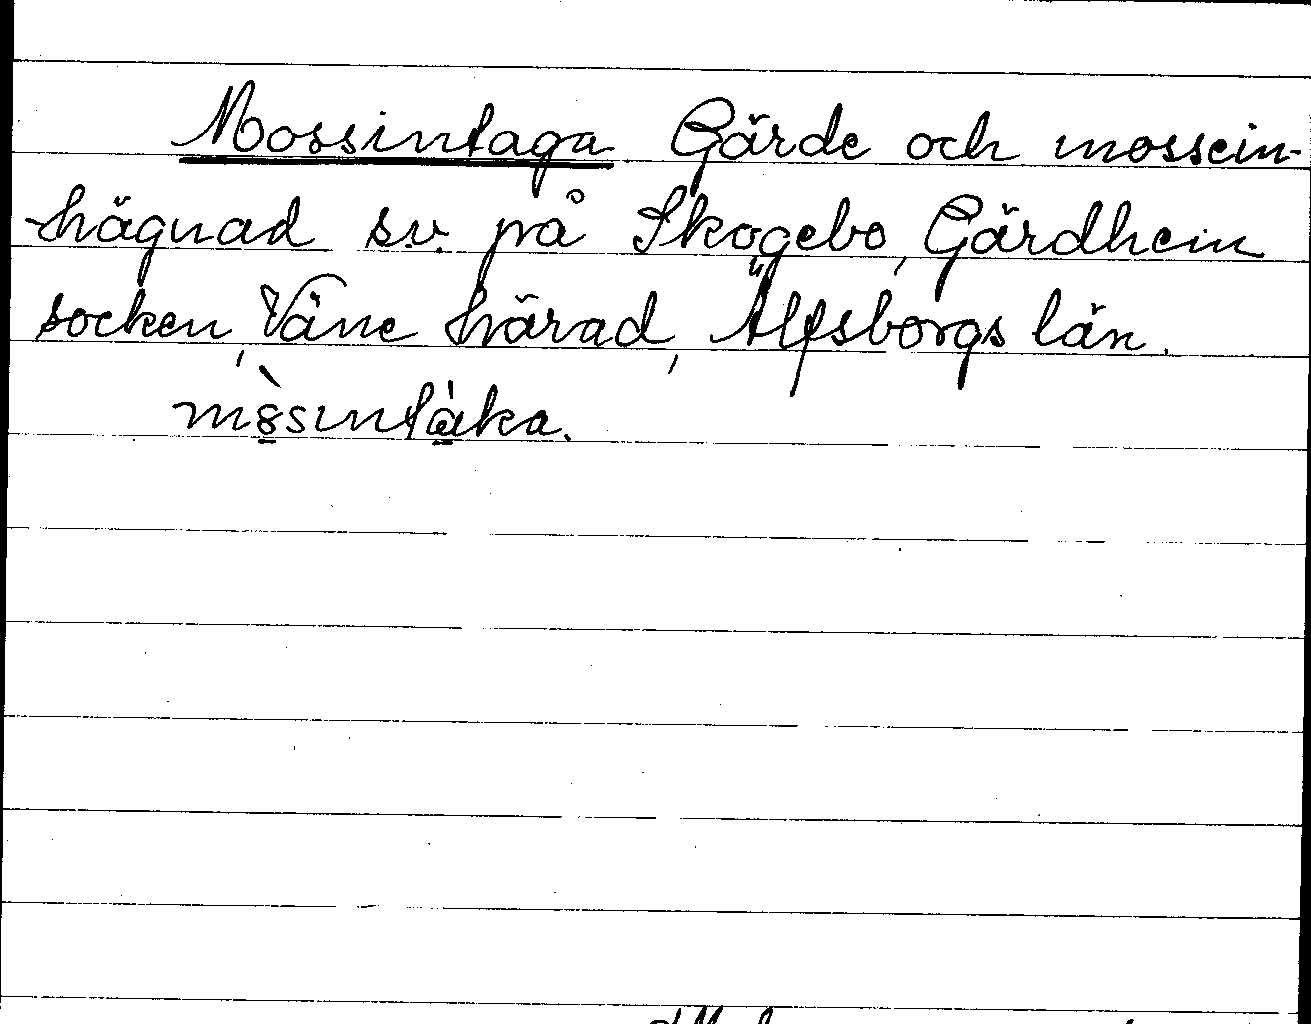 Mossintaga Gärde och mossein-
hägnad sv. på Skogebo, Gärdhem
socken, Väne härad, Älfsborgs län.